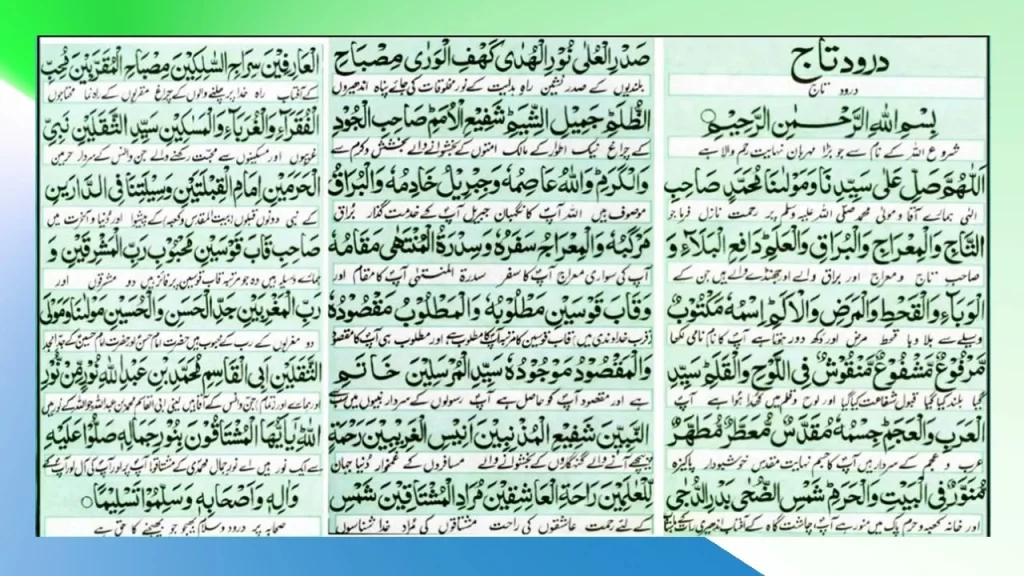 درود تاج
درود تاج
بِسْمِ اللهِ الرَّحْمٰنِ الرَّحِيْمِ
شروع اللہ کے نام سے جو بڑا مہربان نہایت رحم والا ہے
اَللّٰهُمَّ صَلِّ عَلٰى سَيِّدِنَا وَمَوْلٰنَا مُحَمَّدٍ صَاحِبِ
الٰہی ہمارے آقا و مولیٰ محمد صلی اللہ علیہ وسلم پر رحمت نازل فرما جو
التَّاجِ وَالْمِعْرَاجِ وَالْبُرَاقِ وَالْعَلَمِ دَافِعِ الْبَلَاۤءِ وَ
صاحب تاج و معراج اور براق والے اور جھنڈے والے ہیں جن کے
الْوَبَاۤءِ وَالْقَحْطِ وَالْمَرَضِ وَالْاَلَمِ اِسْمُهٗ مَكْتُوْبٌ
وسیلے سے بلا وبا قحط مرض اور دکھ دور ہوتا ہے آپ کا نام نامی لکھا
مَّرْفُوْعٌ مَّشْفُوْعٌ مَّنْقُوْشٌ فِى اللَّوْحِ وَالْقَلَمِ سَيِّدِ
گیا بلند کیا گیا قبول شفاعت کیا گیا اور لوح و قلم میں کھدا ہوا ہے آپ
الْعَرَبِ وَالْعَجَمِ جِسْمُهٗ مُقَدَّسٌ مُّعَطَّرٌ مُّطَهَّرٌ
عرب و عجم کے سردار ہیں آپ کا جسم نہایت مقدس خوشبودار پاکیزہ
مُّنَوَّرٌ فِى الْبَيْتِ وَالْحَرَمِ شَمْسِ الضُّحٰى بَدْرِ الدُّجٰى
اور خانہ کعبہ و حرم پاک میں منور ہے آپ چاشت گاہ کے آفتاب اندھیری رات کے
صَدْرِ الْعُلٰى نُوْرِ الْهُدٰى كَهْفِ الْوَرٰى مِصْبَاحِ
بلندیوں کے صدر نشین راہ ہدایت کے نور مخلوقات کی جائے پناہ اندھیروں
الظُّلَمِ جَمِيْلِ الشِّيَمِ شَفِيْعِ الْاُمَمِ صَاحِبِ الْجُوْدِ
کے چراغ نیک اطوار کے مالک امتوں کے بخشوانے والے بخشش و کرم سے
وَالْكَرَمِ وَاللهُ عَاصِمُهٗ وَجِبْرِيْلُ خَادِمُهٗ وَالْبُرَاقُ
موصوف ہیں اللہ آپ کا نگہبان جبریل آپ کے خدمت گذار براق
مَرْكَبُهٗ وَالْمِعْرَاجُ سَفَرُهٗ وَسِدْرَةُ الْمُنْتَهٰى مَقَامُهٗ
آپ کی سواری معراج آپ کا سفر سدرۃ المنتہیٰ آپ کا مقام اور
وَقَابَ قَوْسَيْنِ مَطْلُوْبُهٗ وَالْمَطْلُوْبُ مَقْصُوْدُهٗ
قرب خداوندی میں قاب قوسین کا مرتبہ آپ کا مطلوب ہے اور مطلوب ہی آپ کا مقصود
وَالْمَقْصُوْدُ مَوْجُوْدُهٗ سَيِّدِ الْمُرْسَلِيْنَ خَاتَمِ
ہے اور مقصود آپ کو حاصل ہے آپ رسولوں کے سردار نبیوں میں سب
النَّبِيِّيْنَ شَفِيْعِ الْمُذْنِبِيْنَ اَنِيْسِ الْغَرِيْبِيْنَ رَحْمَةٍ
پیچھے آنے والے گنہگاروں کے بخشوانے والے مسافروں کے غمخوار دنیا جہان
لِّلْعٰلَمِيْنَ رَاحَةِ الْعَاشِقِيْنَ مُرَادِ الْمُشْتَاقِيْنَ شَمْسِ
کے لئے رحمت عاشقوں کی راحت مشتاقوں کی مراد خدا شناسوں
الْعَارِفِيْنَ سِرَاجِ السَّالِكِيْنَ مِصْبَاحِ الْمُقَرَّبِيْنَ مُحِبِّ
کے آفتاب راہ خدا پر چلنے والوں کے چراغ مقربوں کے راہ نما محتاجوں
الْفُقَرَاۤءِ وَالْغُرَبَاۤءِ وَالْمَسٰكِيْنَ سَيِّدِ الثَّقَلَيْنِ نَبِيِّ
غریبوں اور مسکینوں سے محبت رکھنے والے جن و انس کے سردار حرمین
الْحَرَمَيْنِ اِمَامِ الْقِبْلَتَيْنِ وَسِيْلَتِنَا فِى الدَّارَيْنِ
کے نبی دونوں قبلوں (بیت المقدس و کعبہ) کے پیشوا اور دنیا و آخرت میں
صَاحِبِ قَابَ قَوْسَيْنِ مَحْبُوْبِ رَبِّ الْمَشْرِقَيْنِ وَ
ہمارے وسیلہ ہیں وہ جو مرتبہ قاب قوسین پر فائز ہیں دو مشرقوں اور
رَبِّ الْمَغْرِبَيْنِ جَدِّ الْحَسَنِ وَالْحُسَيْنِ مَوْلٰنَا وَمَوْلَى
دو مغربوں کے رب کے محبوب ہیں حضرت امام حسن اور حضرت امام حسین کے جد امجد
الثَّقَلَيْنِ اَبِى الْقَاسِمِ مُحَمَّدِ بْنِ عَبْدِ اللهِ نُوْرٍ مِّنْ نُّوْرِ
اور ہمارے اور تمام جن و انس کے آقا ہیں یعنی ابی القاسم محمد بن عبداللہ جو اللہ کے نور میں
اللهِ يٰاَيُّهَا الْمُشْتَاقُوْنَ بِنُوْرِ جَمَالِهٖ صَلُّوْا عَلَيْهِ
سے ایک نور ہیں اے نور جمال محمدی کے مشتاقو آپ پر اور آپ کی آل اور آپ کے
وَاٰلِهٖ وَاَصْحَابِهٖ وَسَلِّمُوْا تَسْلِيْمًا
صحابہ پر درود و سلام بھیجو جو بھیجنے کا حق ہے